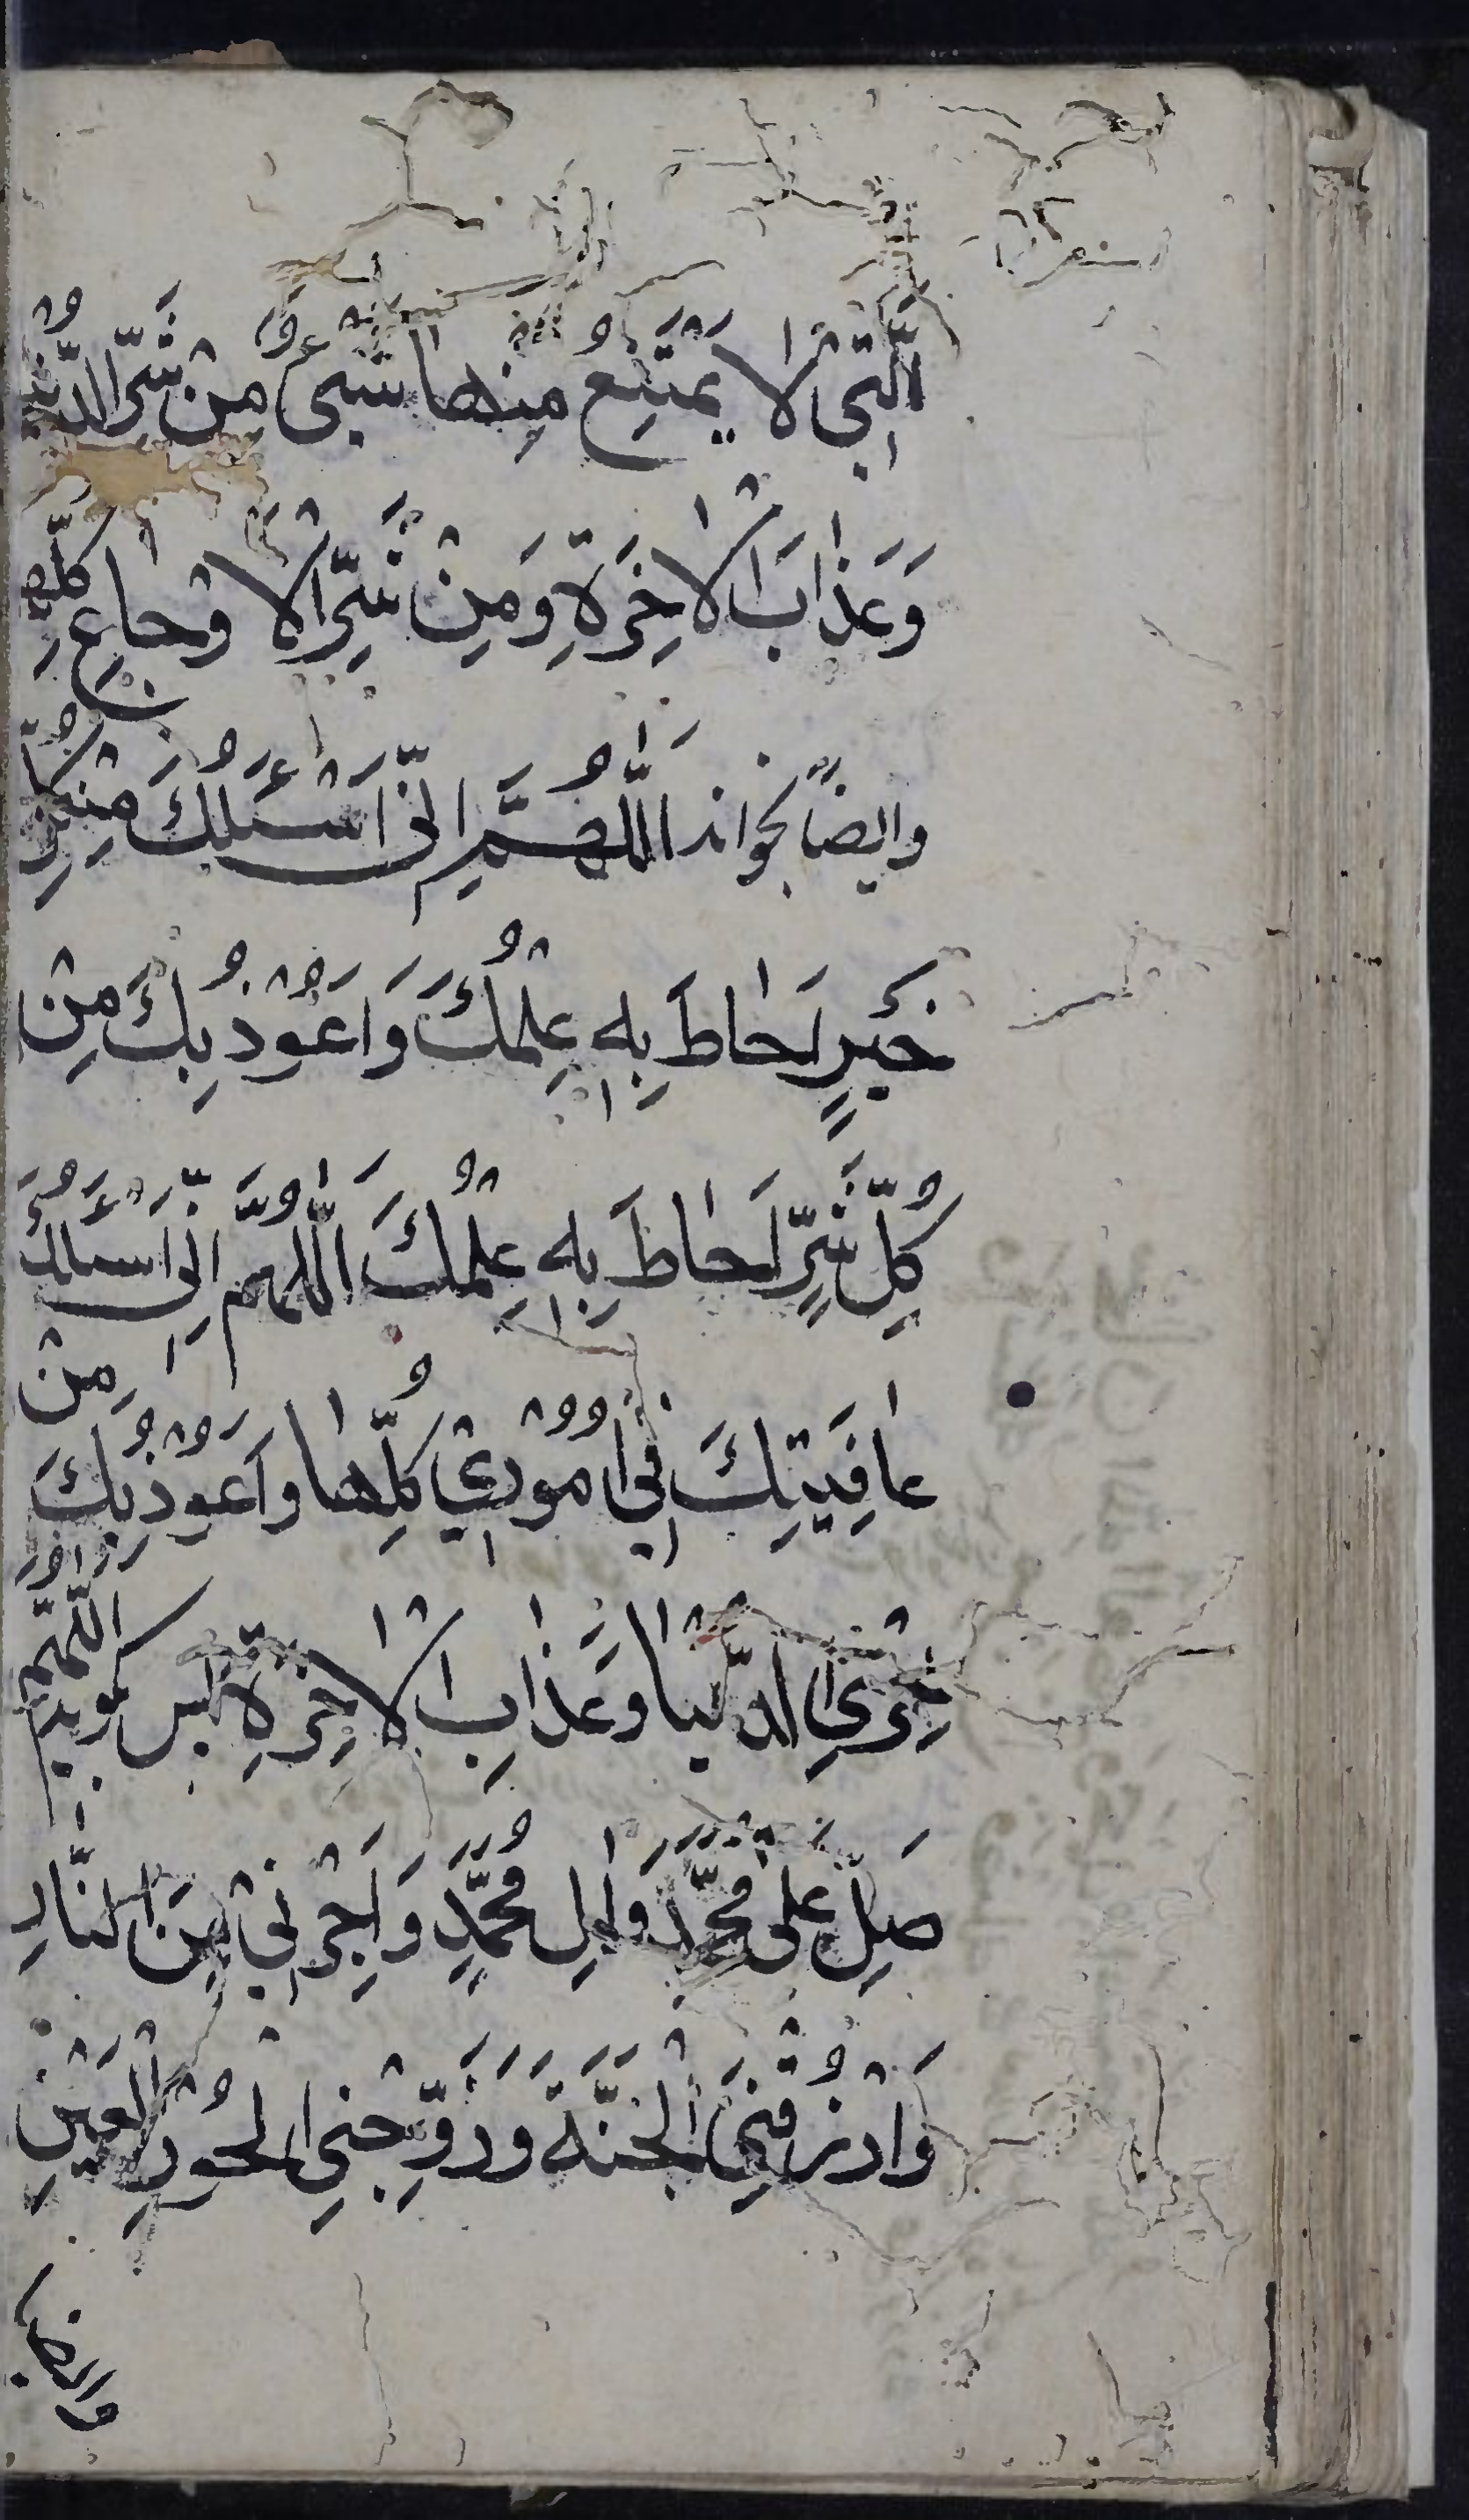 الَّتِي لَا يَمْتَنِعُ مِنْهَا شَيْءٌ مِنْ شَرِّ الدُّنْيَا
وَعَذَابَ الْاٰخِرَةِ وَمِنْ شَرِّ الْاَوْجَاعِ كُلِّهَا
وايضاً بخواند اَللّٰهُمَّ اِنّي اَسْئَلُكَ مِنْ كُلِّ
خَيْرٍ اَحَاطَ بِهِ عِلْمُكَ وَاَعُوْذُ بِكَ مِنْ
كُلِّ شَرٍّ اَحَاطَ بِهِ عِلْمُكَ اَللّٰهُمَّ اِنِّي اَسْئَلُكَ
عَافِيَتِكَ فِي اُمُوْرِيْ كُلِّهَا وَاَعُوْذُ بِكَ مِنْ
خِزْيِ الدُّنْيَا وَعَذَابِ الْاٰخِرَةِ پس كويد اَللّٰهُمَّ
صَلِّ عَلٰى مُحَمَّدٍ وَاٰلِ مُحَمَّدٍ وَاَجِرْنِيْ مِنَ النَّارِ
وَارْزُقْنِي الْجَنَّةَ وَزَوِّجْنِي الْحُوْرَ الْعِيْنَ
وايضا